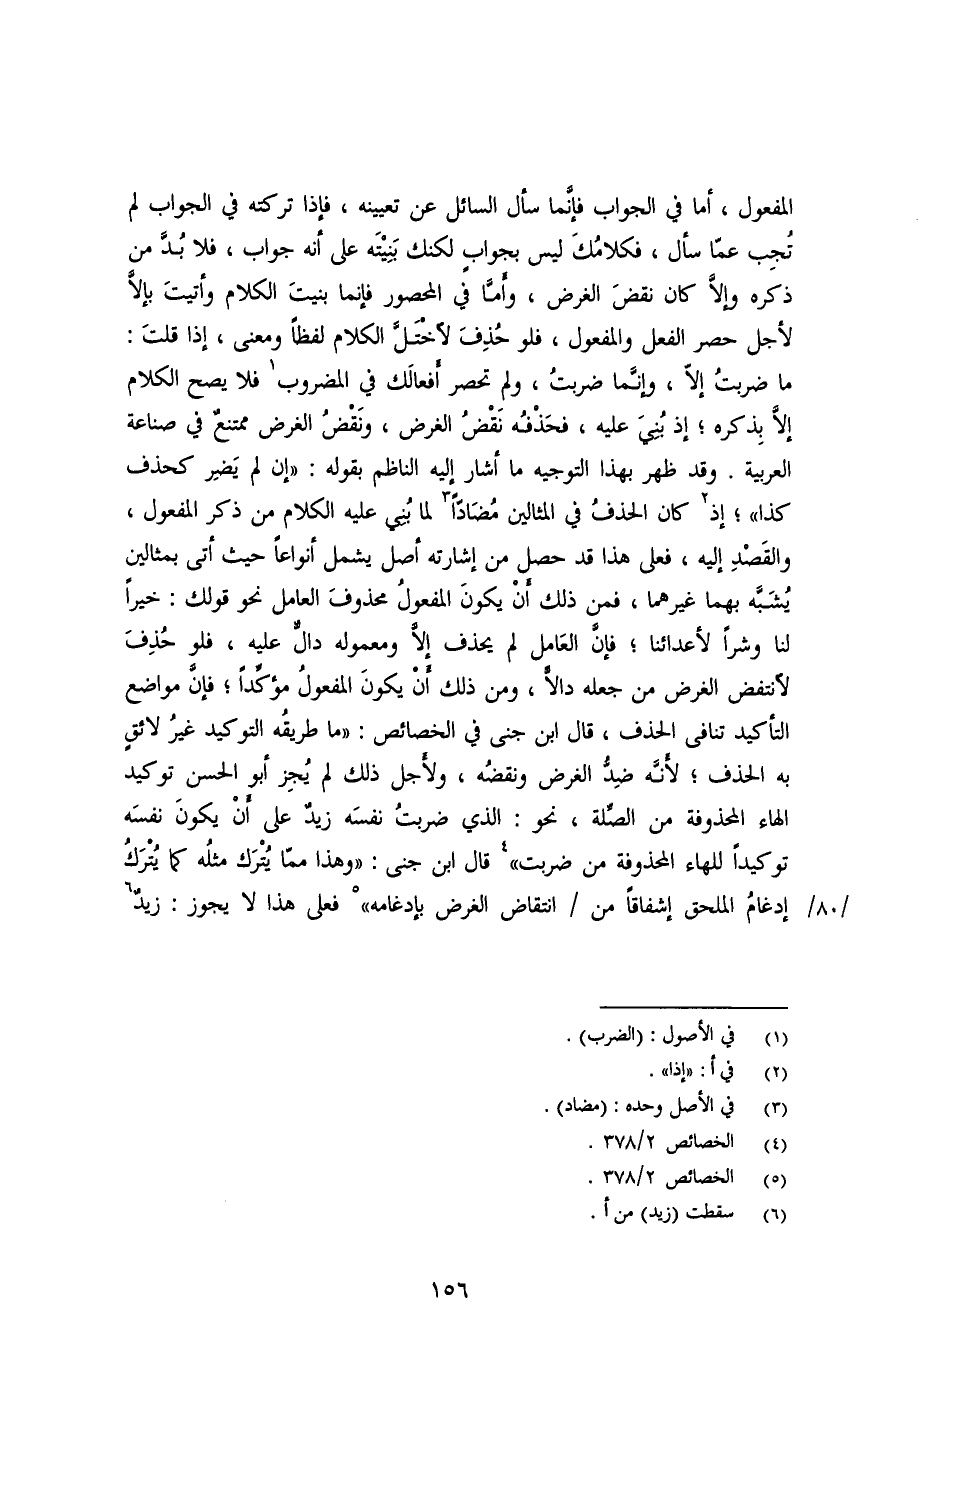 المفعول ، أما في الجواب فإنَّما سأل السائل عن تعيينه ، فإذا تركته في الجواب لم
تُجِب عمّا سأل ، فكلامُكَ ليس بجوابٍ لكنك بَنِيْتَه على أنه جواب ، فلا بُدَّ من
ذكره وإلاَّ كان نقضَ الغرض ، وأمَّا في المحصور فإنما بنيتَ الكلام وأتيتَ بإلاَّ
لأجل حصر الفعل والمفعول ، فلو حُذِفَ لاَخْتَلَّ الكلام لفظاً ومعنى ، إذا قلتَ :
ما ضربتُ إلاّ ، وإنَّما ضربتُ ، ولم تحصر أفعالَك في المضروب١ فلا يصح الكلام
إلاَّ بِذكره ؛ إذ بُنِيَ عليه ، فحَذْفُه نَقْضُ الغرض ، ونَقْضُ الغرض ممتنعٌ في صناعة
العربية . وقد ظهر بهذا التوجيه ما أشار إليه الناظم بقوله : «إن لم يَضِير كحذف
كذا» ؛ إذ٢ كان الحذفُ في المثالين مُضَادّاً٣ لما بُنِي عليه الكلام من ذكر المفعول ،
والقَصْدِ إليه ، فعلى هذا قد حصل من إشارته أصل يشمل أنواعاً حيث أتى بمثالين
يُشَبَّه بهما غيرهما ، فمن ذلك أنْ يكونَ المفعولُ محذوفَ العامل نحو قولك : خيراً
لنا وشراً لأعدائنا ؛ فإنَّ العَامل لم يحذف إلاَّ ومعموله دالٌّ عليه ، فلو حُذِفَ
لاَنتفض الغرض من جعله دالاًّ ، ومن ذلك أنْ يكونَ المفعولُ مؤكِّداً ؛ فإنَّ مواضع
التأكيد تنافى الحذف ، قال ابن جنى في الخصائص : «ما طريقُه التوكيد غيرُ لائقٍ
به الحذف ؛ لأنَّه ضِدُّ الغرض ونقضُه ، ولأجل ذلك لم يُجِز أبو الحسن توكيد
الهاء المحذوفة من الصِّلة ، نحو : الذي ضربتُ نفسَه زيدٌ على أنْ يكونَ نفسَه
توكيداً للهاء المحذوفة من ضربت»٤ قال ابن جنى : «وهذا ممّا يُتْرَك مثلُه كما يُتْرَكُ
/٨٠/ إدغامُ الملحق إشفاقاً من / انتقاض الغرض بإدغامه»٥ فعلى هذا لا يجوز : زيدٌ٦
(١) في الأصول : (الضرب) .
(٢) في أ : «إذا» .
(٣) في الأصل وحده : (مضاد) .
(٤) الخصائص ٣٧٨/٢ .
(٥) الخصائص ٣٧٨/٢ .
(٦) سقطت (زيد) من أ .
١٥٦